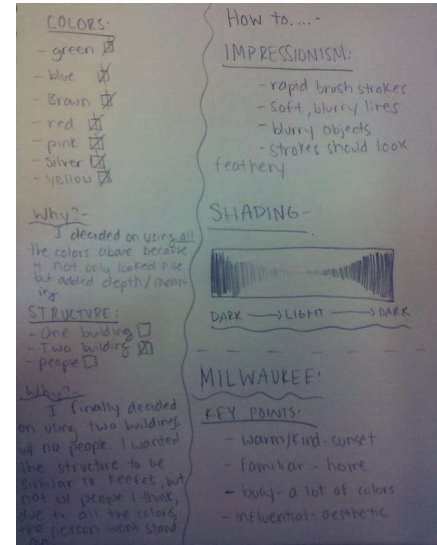 COLORS:
- green ☒
- blue ☒
- Brown ☒
- red ☒
- pink ☒
- Silver ☒
- yellow ☒
Why?-
I decided on using all
the colors above because
it not only looked nice
but added depth/mean-
ing.
STRUCTURE:
- One building ☐
- Two building ☒
- people ☐
Why?-
I finally decided
on using two buildings
w/ no people. I wanted
the structure to be
similar to Keefes, but
not w/ people I think,
due to all the colors,
the person wont stand
How to....-
IMPRESSIONISM:
- rapid brush strokes
- soft, blurry lines
- blurry objects
- strokes should look
feathery
SHADING-
DARK → LIGHT → DARK
MILWAUKEE:
KEY POINTS:
- warm/kind- sunset
- familiar - home
- busy- a lot of colors
- influential- aesthetic